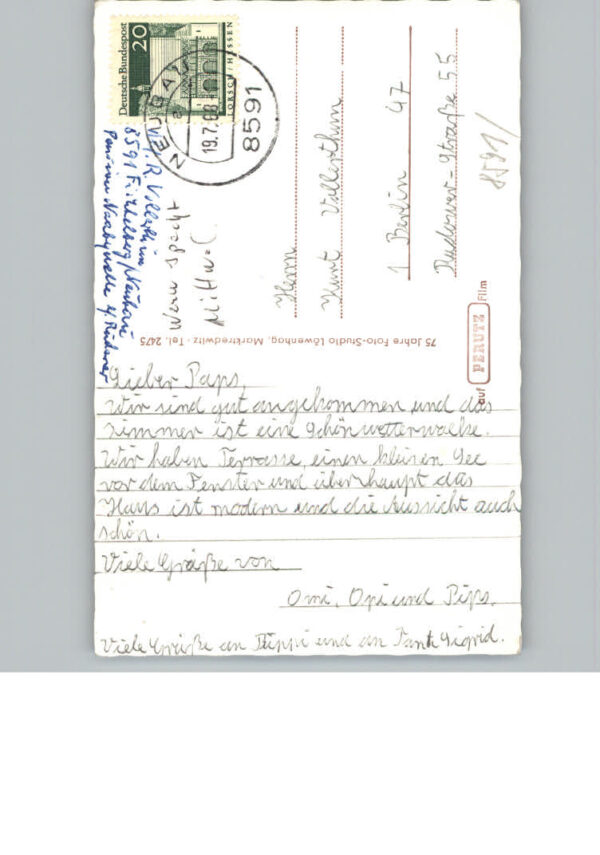 Lieber Paps,
wir sind gut angekommen und das
Zimmer ist eine Schönwetterwolke.
Wir haben Terrasse, einen kleinen See
vor dem Fenster und überhaupt das
Haus ist modern und die Aussicht auch
schön.
Viele Grüße von
Omi, Opi und Pips.
Viele Grüße an Flippi und an Tante Sigrid.
Herrn
Kurt Vollerthum
1 Berlin 47
Rudower-Straße 55
8591/
Deutsche Bundespost
20
LORSCH/HESSEN
NEUBAU
a
19.7.68
8591
R. Vollerthum
8591 Fichtelberg/Neubau
Pension Naabquelle
75 Jahre Foto-Studio Löwenhag, Marktredwitz - Tel. 2475
auf PERUTZ Film